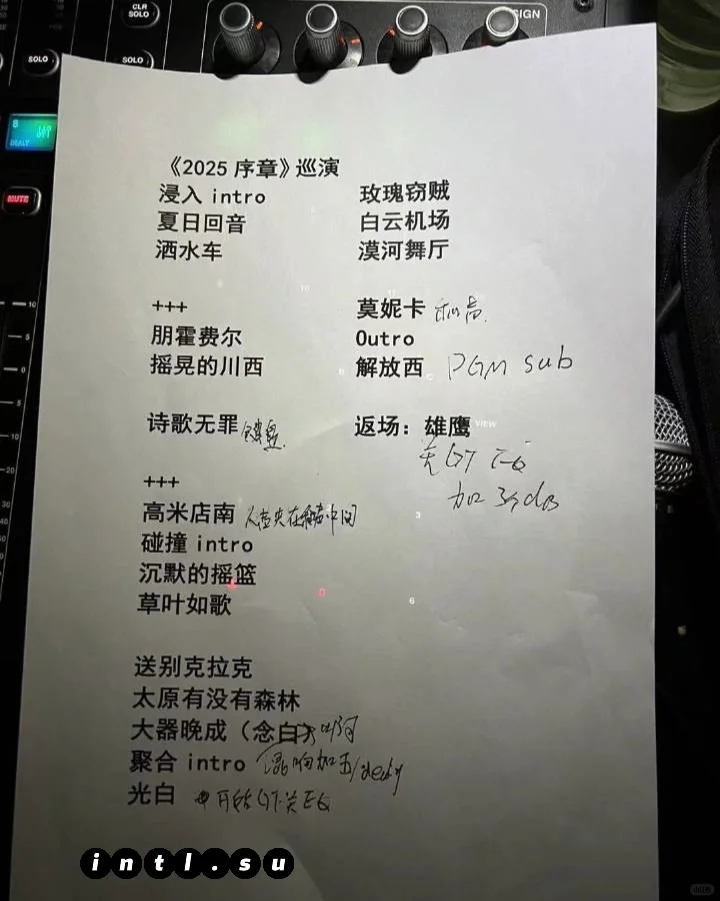 CLR
SOLO
SOLO
SOLO
SIGN
MUTE
《2025 序章》巡演
浸入 intro
夏日回音
洒水车
+++
朋霍费尔
摇晃的川西
诗歌无罪 键盘
+++
高米店南
碰撞 intro
沉默的摇篮
草叶如歌
送别克拉克
太原有没有森林
大器晚成（念白）
聚合 intro 混响加
光白
玫瑰窃贼
白云机场
漠河舞厅
莫妮卡
Outro
解放西 PGM sub
返场：雄鹰
VIEW
关 GT
加 3 dB
10
5
0
5
10
20
30
40
50
intl.su
小红书